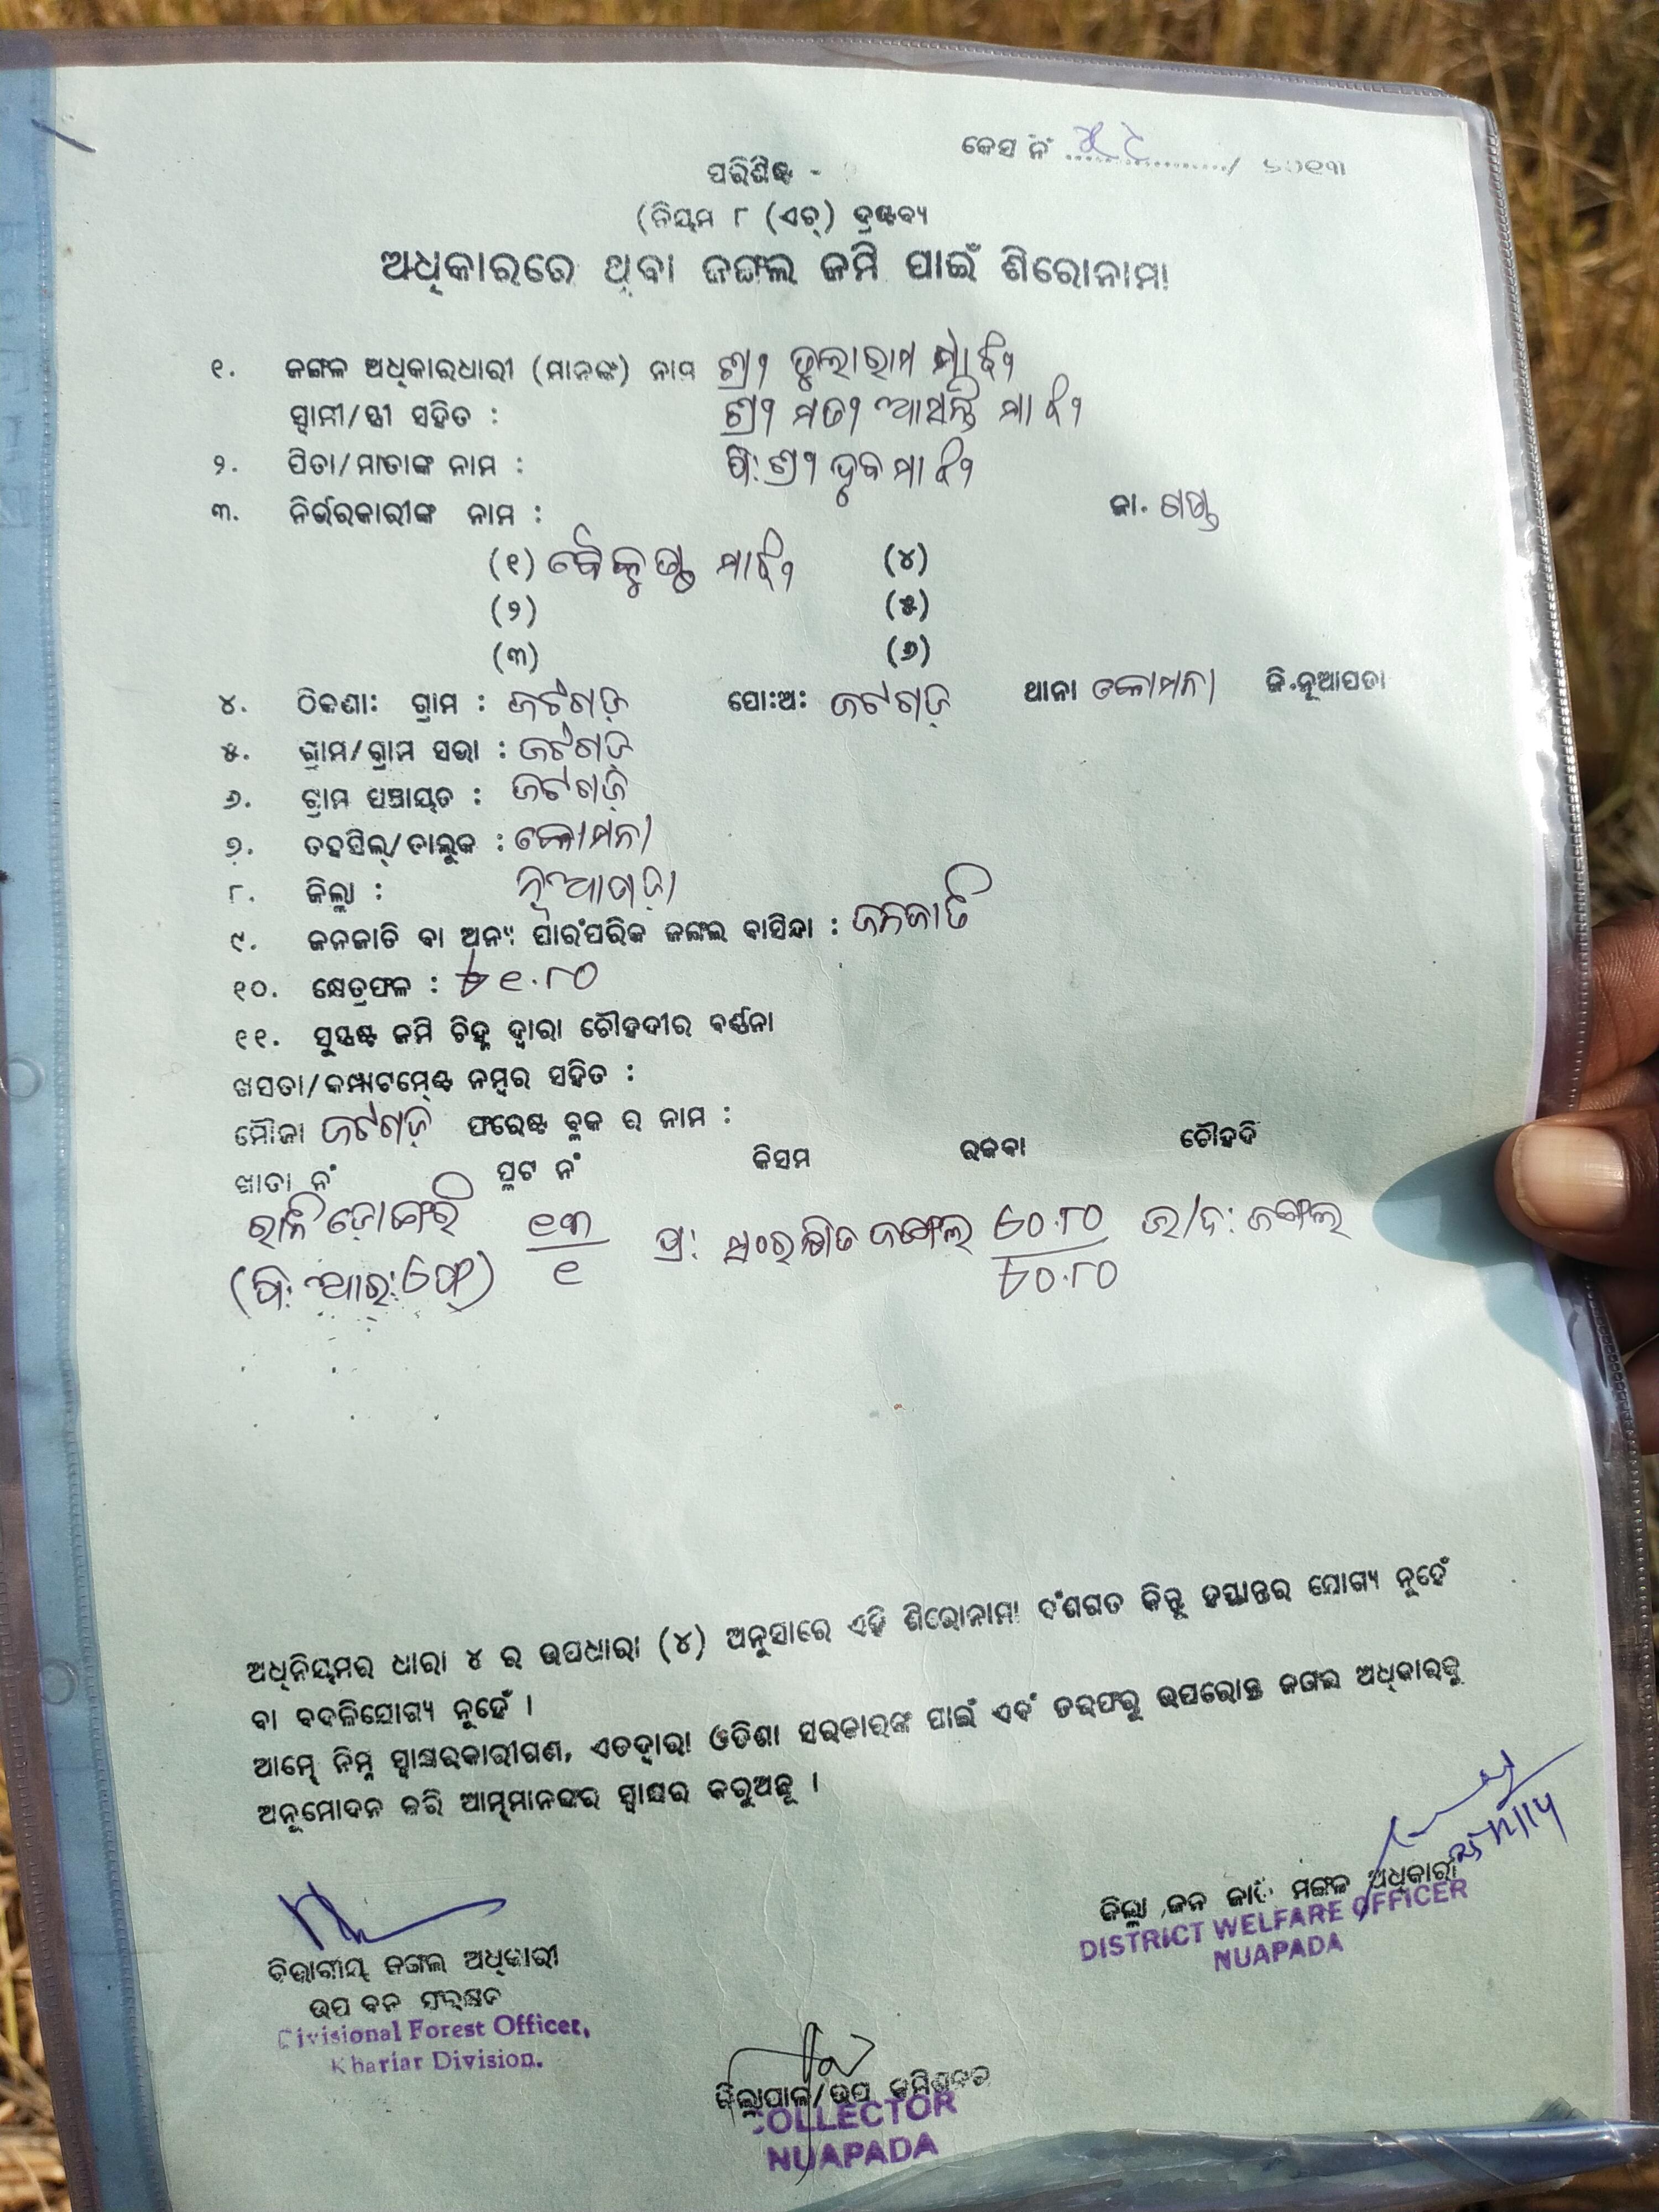 କେସ ନଂ ............/ ୨୦୧୩
ପରିଶିଷ୍ଟ -
(ନିୟମ ୮ (ଏଚ୍) ଦ୍ରଷ୍ଟବ୍ୟ
ଅଧିକାରରେ ଥିବା ଜଙ୍ଗଲ ଜମି ପାଇଁ ଶିରୋନାମା
୧. ଜଙ୍ଗଳ ଅଧିକାରଧାରୀ (ମାନଙ୍କ) ନାମ ଶ୍ରୀ ତୁଲାରାମ ମାଝି
ସ୍ୱାମୀ/ସ୍ତ୍ରୀ ସହିତ : ଶ୍ରୀ ମତୀ ଆସନ୍ତି ମାଝି
୨. ପିତା/ମାତାଙ୍କ ନାମ : ପି: ଶ୍ରୀ ଭୁକ ମାଝି
୩. ନିର୍ଭରକାରୀଙ୍କ ନାମ : ଜା. ଗଣ୍ଡ
(୧) ବୈକୁଣ୍ଠ ମାଝି (୪)
(୨) (୫)
(୩) (୬)
୪. ଠିକଣା: ଗ୍ରାମ : ଜଟଗଡ଼ ପୋ:ଅ: ଜଟଗଡ଼ ଥାନା କୋମନା ଜି.ନୂଆପଡା
୫. ଗ୍ରାମ/ଗ୍ରାମ ସଭା : ଜଟଗଡ଼
୬. ଗ୍ରାମ ପଞ୍ଚାୟତ : ଜଟଗଡ଼
୭. ତହସିଲ୍/ତାଲୁକ : କୋମନା
୮. ଜିଲ୍ଲା : ନୂଆପଡ଼ା
୯. ଜନଜାତି ବା ଅନ୍ୟ ପାରଂପରିକ ଜଙ୍ଗଲ ବାସିନ୍ଦା : ଜନଜାତି
୧୦. କ୍ଷେତ୍ରଫଳ : ୧.୮୦
୧୧. ସୁସ୍ପଷ୍ଟ ଜମି ଚିହ୍ନ ଦ୍ୱାରା ଚୌହଦୀର ବର୍ଣ୍ଣନା
ଖସଡା/କମ୍ପାଟମେଣ୍ଟ ନମ୍ବର ସହିତ :
ମୌଜା ଜଟଗଡ଼ ଫରେଷ୍ଟ ବ୍ଲକ ର ନାମ :
ଖାତା ନଂ ପ୍ଲଟ ନଂ କିସମ ରକବା ଚୌହଦି
ରାନି ଡୋଙ୍ଗରି ୧୩ ପ୍ର: ସଂରକ୍ଷିତ ଜଙ୍ଗଲ ୦.୮୦ ଉ/ଦ: ଜଙ୍ଗଲ
(ପି: ଆର: ଫେ) ୧ ୦.୮୦
ଅଧିନିୟମର ଧାରା ୪ ର ଉପଧାରା (୪) ଅନୁସାରେ ଏହି ଶିରୋନାମା ବଂଶଗତ କିନ୍ତୁ ହସ୍ତାନ୍ତର ଯୋଗ୍ୟ ନୁହେଁ
ବା ବଦଳିଯୋଗ୍ୟ ନୁହେଁ ।
ଆମ୍ଭେ ନିମ୍ନ ସ୍ୱାକ୍ଷରକାରୀଗଣ, ଏତଦ୍ୱାରା ଓଡିଶା ସରକାରଙ୍କ ପାଇଁ ଏବଂ ତରଫରୁ ଉପରୋକ୍ତ ଜଙ୍ଗଲ ଅଧିକାରକୁ
ଅନୁମୋଦନ କରି ଆମ୍ଭମାନଙ୍କର ସ୍ୱାକ୍ଷର କରୁଅଛୁ ।
ଜିଲ୍ଲା ଜନ ଜାତି ମଙ୍ଗଳ ଅଧିକାରୀ
DISTRICT WELFARE OFFICER
NUAPADA
ବିଭାଗୀୟ ଜଙ୍ଗଲ ଅଧିକାରୀ
ଉପ ବନ ସଂରକ୍ଷକ
Divisional Forest Officer,
Khariar Division.
ଜିଲ୍ଲାପାଳ/ଉପ କମିଶନର
COLLECTOR
NUAPADA